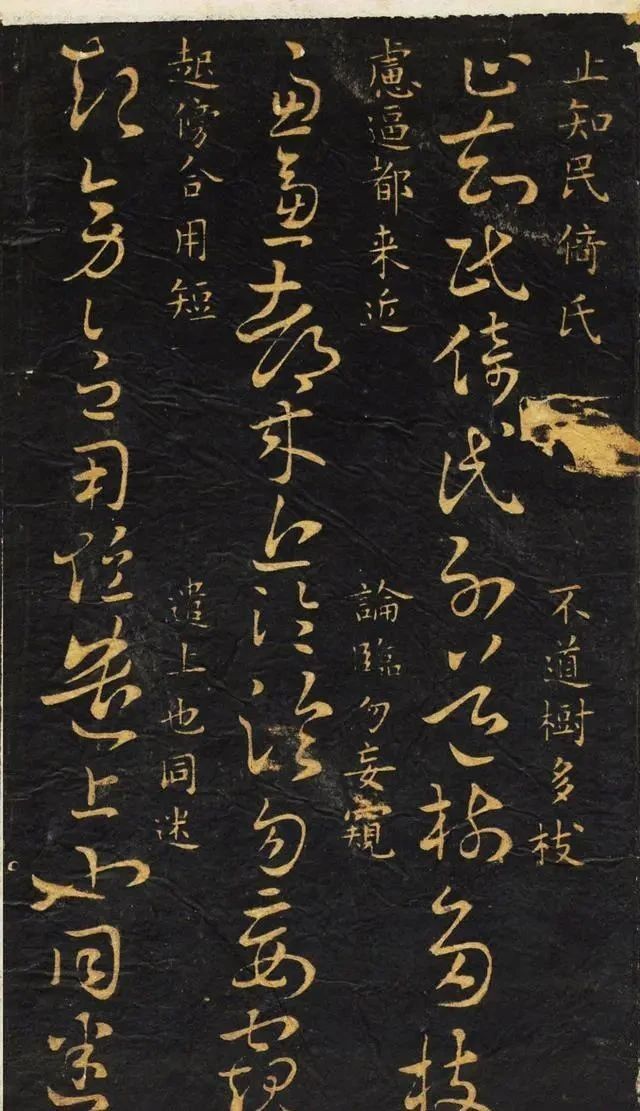 止知民倚氏 不道樹多枝
止知民倚氏不道樹多枝
慮逼都来近 論臨勿妄窺
慮逼都来近論臨勿妄窺
起傍合用短 遣上也同迷
起傍合用短遣上也同迷